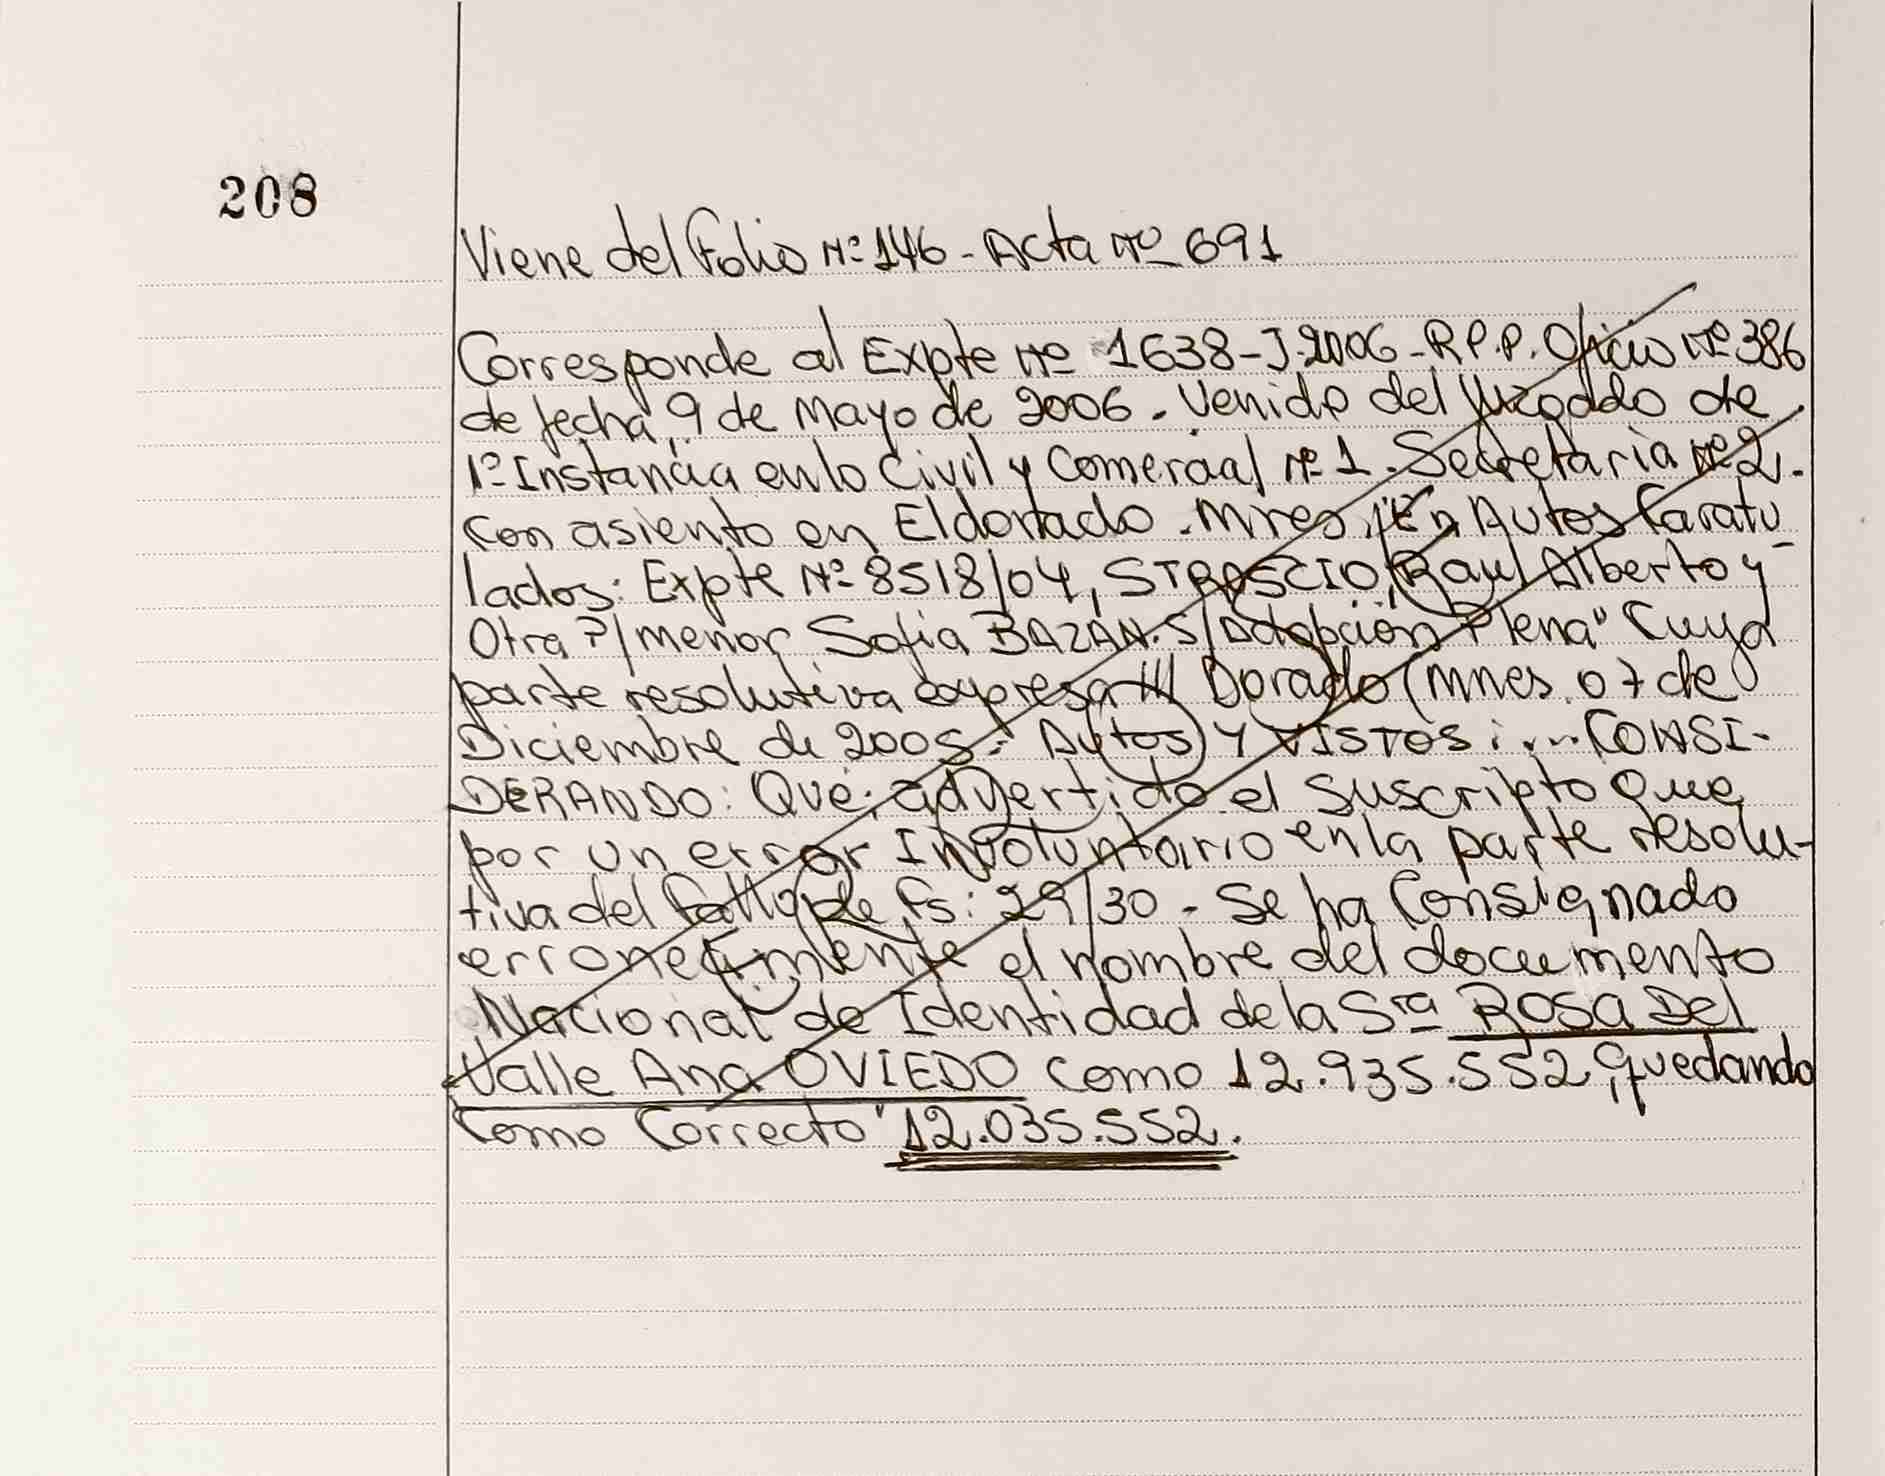 208
Viene del Folio Nº 146 - Acta Nº 691
Corresponde al Expte Nº 1638-J-2006-R.P.P. Oficio Nº 386
de fecha, 9 de Mayo de 2006. Venido del Juzgado de
1º Instancia en lo Civil y Comercial Nº 1. Secretaria Nº 2.
con asiento en Eldorado. Mnes, "En Autos Caratu
lados: Expte Nº 8518/04, STRASCIO, Raul Alberto y
Otra P/menor Sofia BAZAN. S/Adopción Plena" Cuya
parte resolutiva expresa /// Dorado (Mnes. 07 de
Diciembre de 2005.- Autos Y VISTOS: ... CONSI-
DERANDO: Que: advertido el suscripto que
por un error Involuntario en la parte resolu-
tiva del fallo de fs: 29/30 - Se ha Consignado
erroneamente el nombre del documento
Nacional de Identidad de la Sra ROSA Del
Valle Ana OVIEDO como 12.935.552, quedando
Como Correcto "12.035.552.